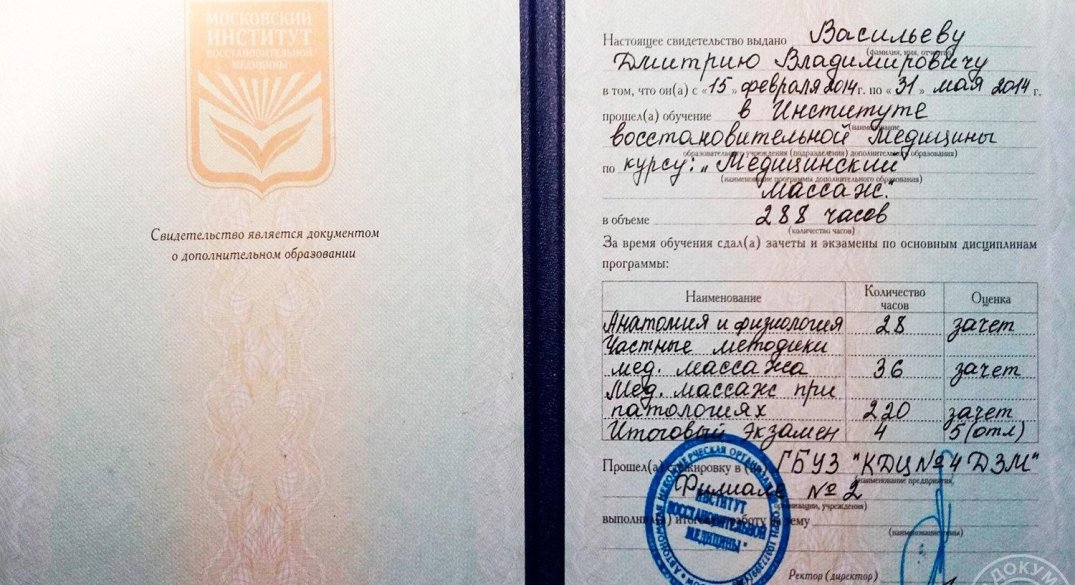 МОСКОВСКИЙ
ИНСТИТУТ
ВОССТАНОВИТЕЛЬНОЙ
МЕДИЦИНЫ
Свидетельство является документом
о дополнительном образовании
Настоящее свидетельство выдано Васильеву
(фамилия, имя, отчество)
Дмитрию Владимировичу
в том, что он(а) с «15» февраля 2014 г. по «31» мая 2014 г.
прошел(а) обучение в Институте
(наименование
восстановительной Медицины
образовательного учреждения (подразделения) дополнительного образования)
по курсу: "Медицинский
(наименование программы дополнительного образования)
массаж."
в объеме 288 часов
(количество часов)
За время обучения сдал(а) зачеты и экзамены по основным дисциплинам
программы:
Наименование Количество часов Оценка
Анатомия и физиология 28 зачет
Частные методики
мед. массажа 36 зачет
Мед. массаж при
патологиях 220 зачет
Итоговый Экзамен 4 5(отл)
Прошел(а) стажировку в (на) ГБУЗ "КДЦ №4 ДЗМ"
(наименование предприятия,
Филиале №2
организации, учреждения)
выполнил(а) итоговую работу на тему
(наименование темы)
ИНСТИТУТ
ВОССТАНОВИТЕЛЬНОЙ
МЕДИЦИНЫ"
Ректор (директор)
ДОКУМ